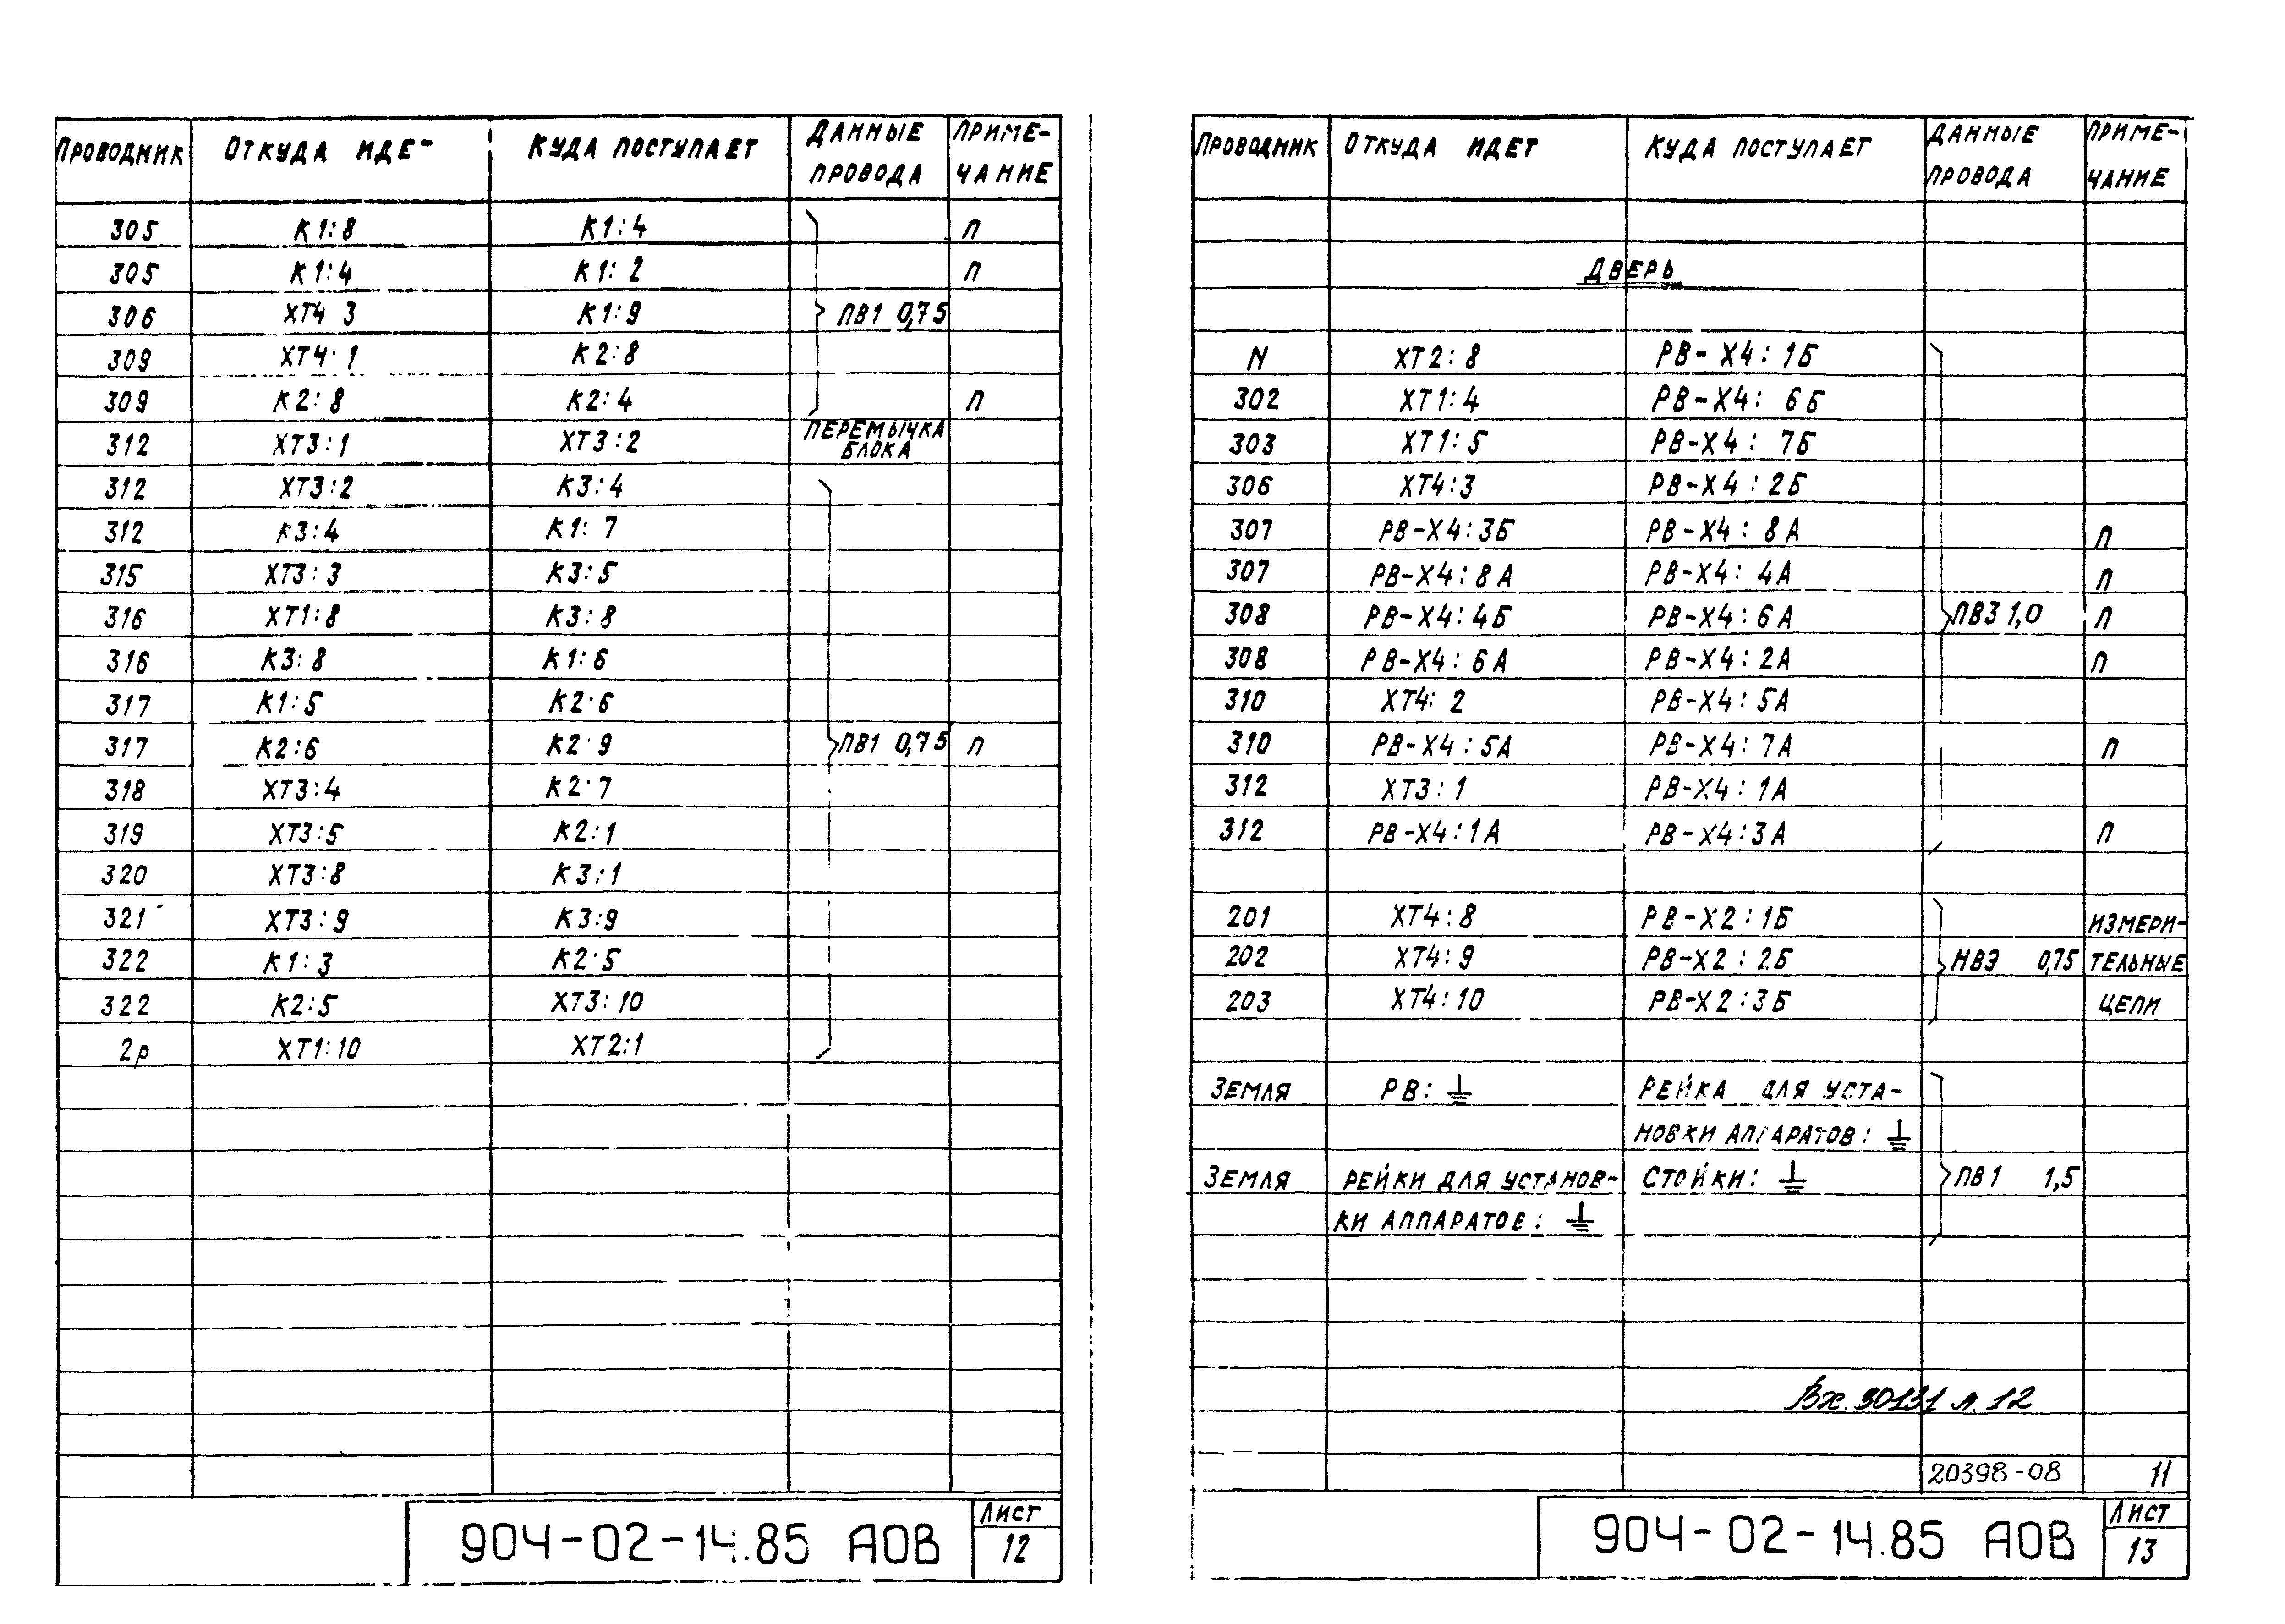 ПРОВОДНИК ОТКУДА ИДЕ КУДА ПОСТУПАЕТ ДАННЫЕ ПРОВОДА ПРИМЕ-ЧАНИЕ
305 К1:8 К1:4 П
305 К1:4 К1:2 П
306 ХТ4 3 К1:9 ПВ1 0,75
309 ХТ4·1 К2:8
309 К2:8 К2:4 П
312 ХТ3:1 ХТ3:2 ПЕРЕМЫЧКА БЛОКА
312 ХТ3:2 К3:4
312 К3:4 К1:7
315 ХТ3:3 К3:5
316 ХТ1:8 К3:8
316 К3:8 К1:6
317 К1:5 К2·6
317 К2:6 К2·9 ПВ1 0,75 П
318 ХТ3:4 К2·7
319 ХТ3:5 К2:1
320 ХТ3:8 К3:1
321 ХТ3:9 К3:9
322 К1:3 К2·5
322 К2:5 ХТ3:10
2р ХТ1:10 ХТ2:1
904-02-14.85 АОВ
ЛИСТ
12
ПРОВОДНИК ОТКУДА ИДЕТ КУДА ПОСТУПАЕТ ДАННЫЕ ПРОВОДА ПРИМЕ-ЧАНИЕ
ДВЕРЬ
N ХТ2:8 РВ-Х4:1Б
302 ХТ1:4 РВ-Х4:6Б
303 ХТ1:5 РВ-Х4:7Б
306 ХТ4:3 РВ-Х4:2Б
307 РВ-Х4:3Б РВ-Х4:8А П
307 РВ-Х4:8А РВ-Х4:4А П
308 РВ-Х4:4Б РВ-Х4:6А ПВ3 1,0 П
308 РВ-Х4:6А РВ-Х4:2А П
310 ХТ4:2 РВ-Х4:5А
310 РВ-Х4:5А РВ-Х4:7А П
312 ХТ3:1 РВ-Х4:1А
312 РВ-Х4:1А РВ-Х4:3А П
201 ХТ4:8 РВ-Х2:1Б ИЗМЕРИ-
202 ХТ4:9 РВ-Х2:2Б НВЭ 0,75 ТЕЛЬНЫЕ
203 ХТ4:10 РВ-Х2:3Б ЦЕПИ
ЗЕМЛЯ РВ:⏚ РЕЙКА ДЛЯ УСТА-
НОВКИ АППАРАТОВ:⏚
ЗЕМЛЯ РЕЙКИ ДЛЯ УСТАНОВ- СТОЙКИ:⏚ ПВ1 1,5
КИ АППАРАТОВ:⏚
Вх. 30131 л. 12
20398-08 11
904-02-14.85 АОВ
ЛИСТ
13